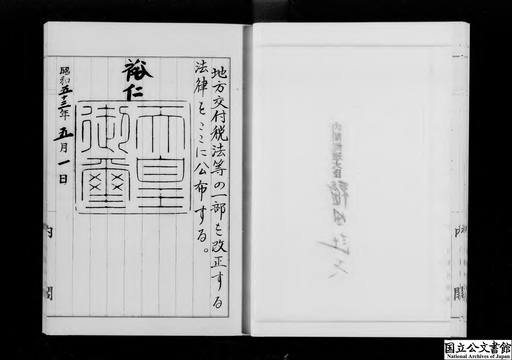 地方交付税法等の一部を改正する
法律をここに公布する。
裕仁
天皇
御璽
昭和五十三年五月一日
内閣
内閣総理大臣
国立公文書館
National Archives of Japan